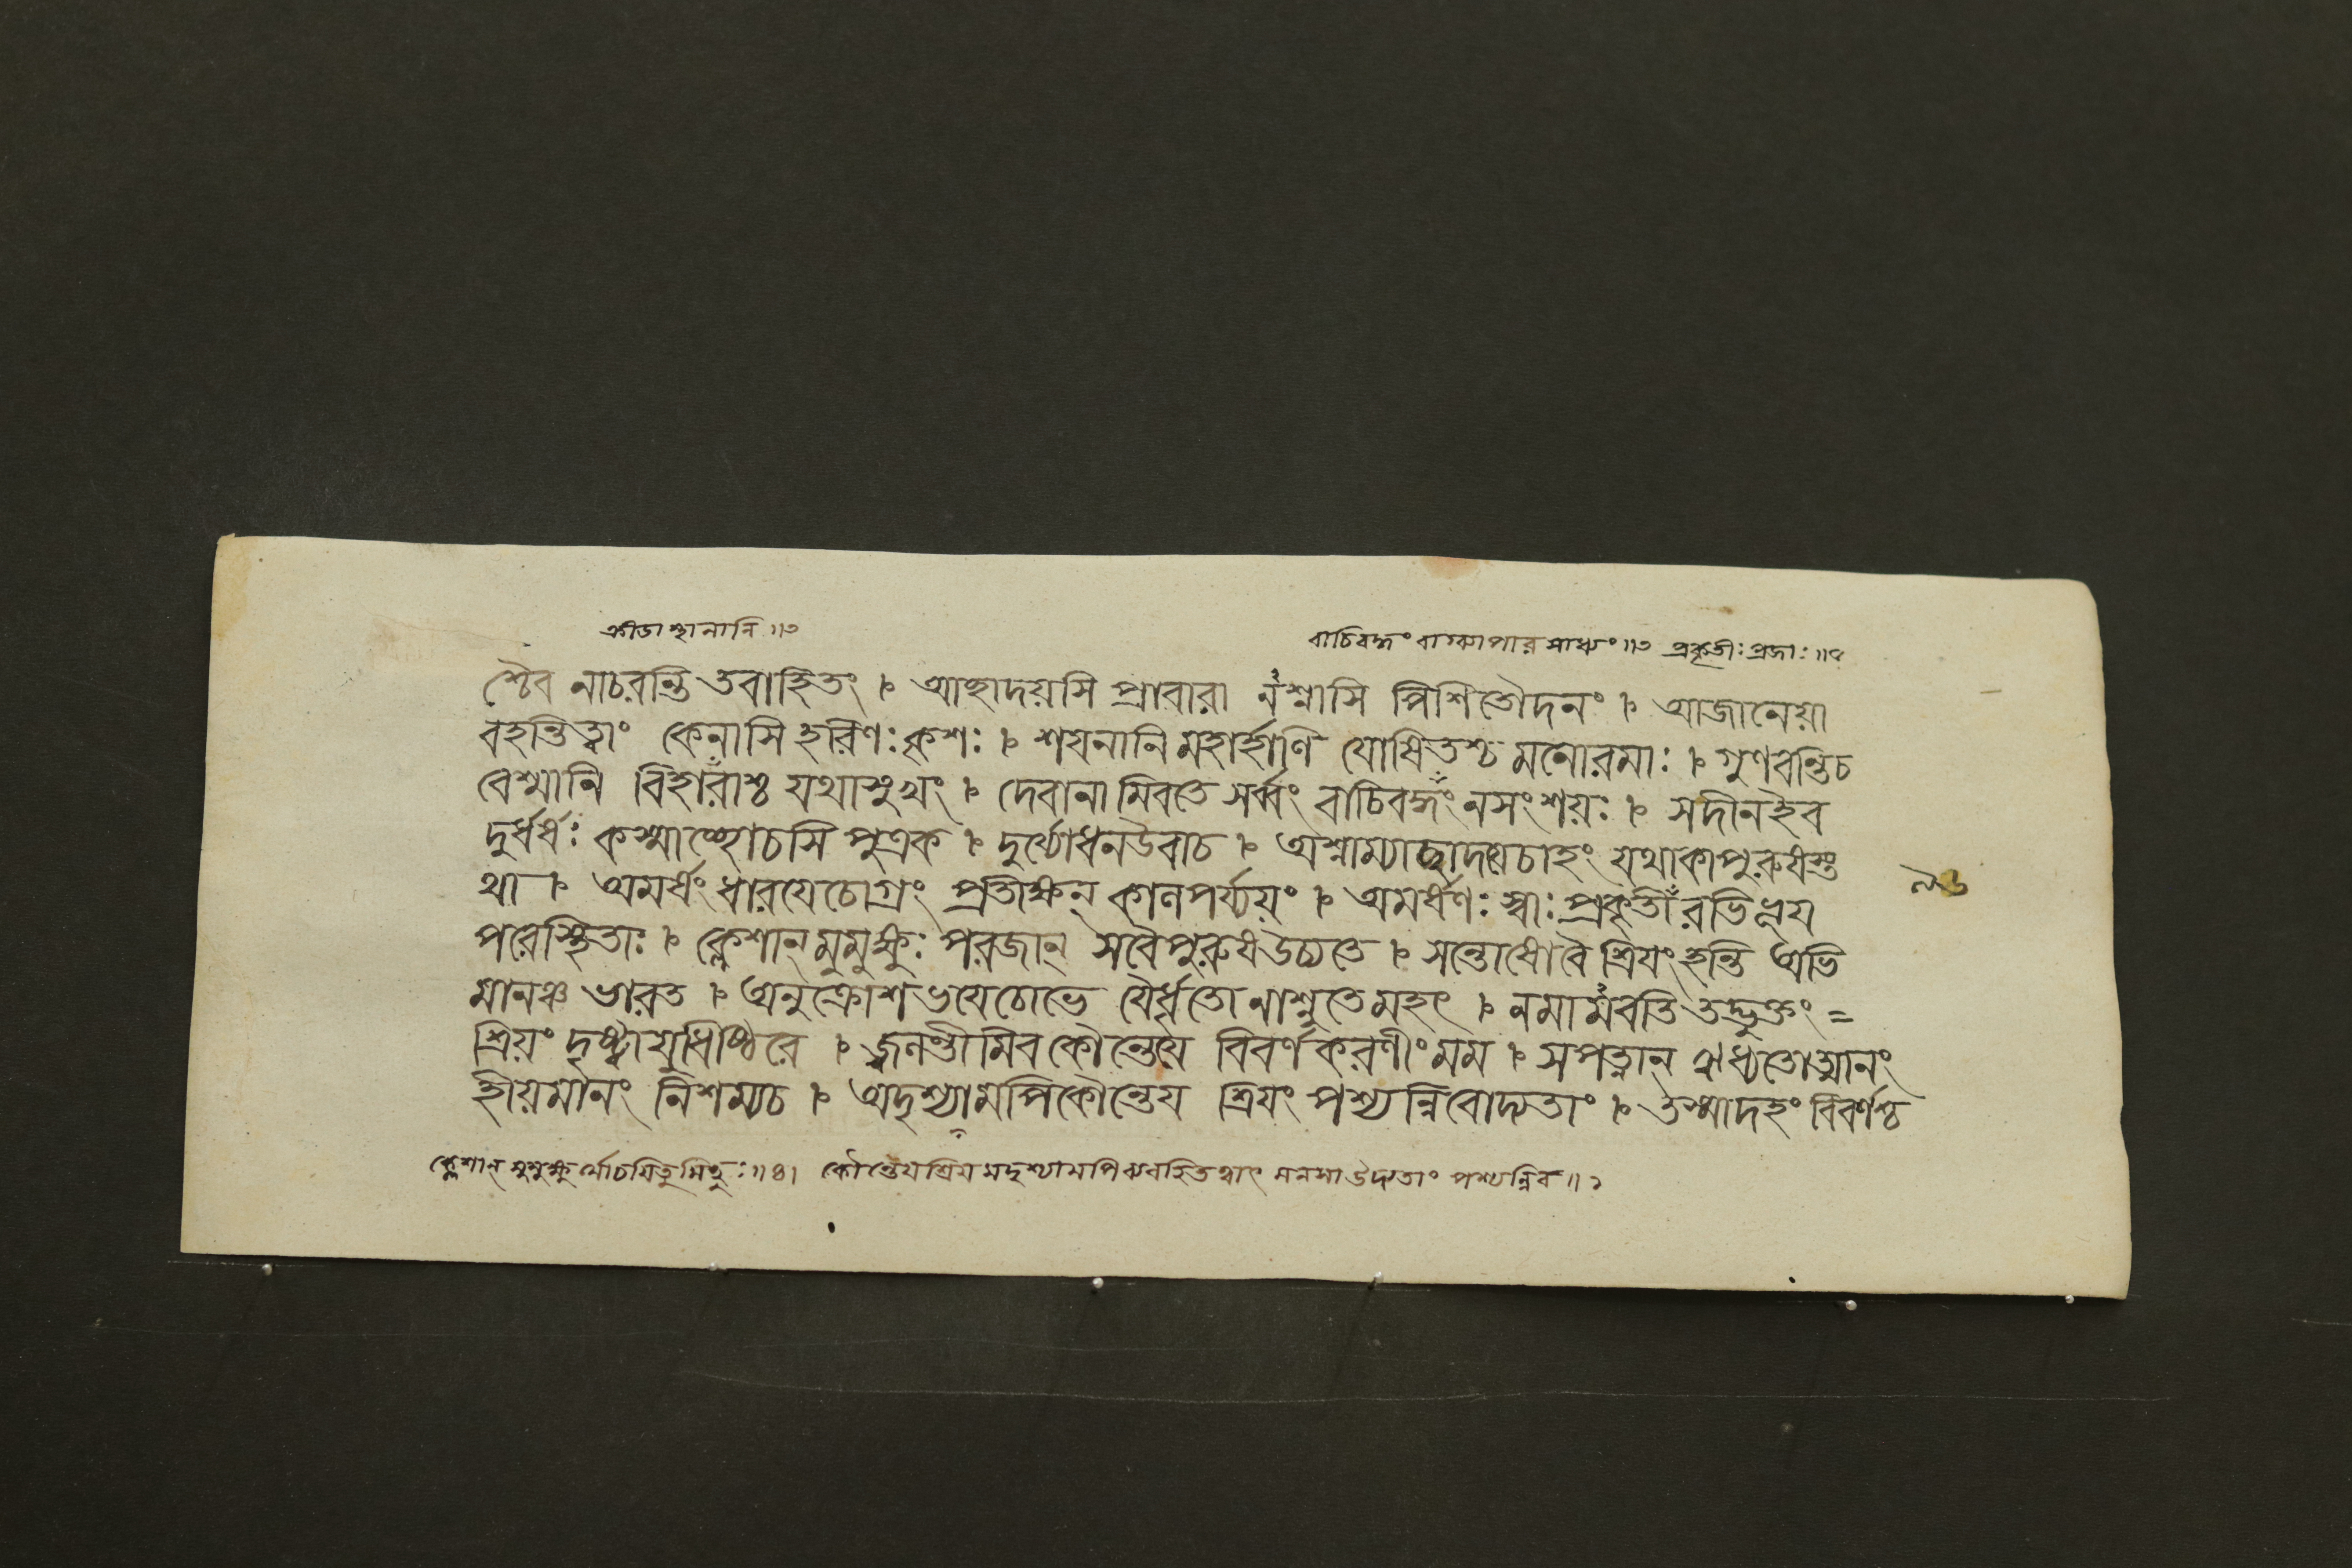 ক্রীডাস্থানানি॥৩
বাচিবদ্ধং বাগ্ব্যাপার সাধ্যং॥৩ প্রকৃতীঃ প্রজাঃ॥৫
শ্চৈব নাচরন্তি তবাহিতং । আচ্ছাদয়সি প্রাবারা নশ্নাসি পিশিতৌদনং । আজানেয়া
বহন্তিত্বাং কেনাসি হরিণঃ কৃশঃ । শয়নানি মহার্হাণি যোষিতশ্চ মনোরমাঃ । গুণবন্তিচ
বেশ্মানি বিহারাঁশ্চ যথাসুখং । দেবানামিবতে সর্ব্বং বাচিবদ্ধং নসংশয়ঃ । সদীনইব
দুর্ধর্ষঃ কস্মাচ্ছোচসি পুত্রক । দুর্যোধনউবাচ । অশ্নাম্যাচ্ছাদয়েচাহং যথাকাপুরুষস্ত
থা । অমর্ষং ধারয়েচোগ্রং প্রতীক্ষন্ কালপর্য্যয়ং । অমর্ষণঃ স্বাঃ প্রকৃতীঁ রভিভূয়
পরেস্থিতাঃ । ক্লেশান্ মুমুক্ষুঃ পরজান্ সবৈপুরুষউচ্যতে । সন্তোষোবৈ শ্রিয়ং হন্তি অভি
মানঞ্চ ভারত । অনুক্রোশভয়েচোভে যৈর্ব্বৃতো নাশ্নুতেমহৎ । নমামবতি তদ্ভুক্তং =
শ্রিয়ং দৃষ্ট্বাযুধিষ্ঠিরে । জ্বলন্তীমিব কৌন্তেয়ে বিবর্ণকরণীং মম । সপত্নান্ ঋধ্যতোত্মানং
হীয়মানং নিশম্যচ । অদৃশ্যামপিকৌন্তেয় শ্রিয়ং পশ্যন্নিবোদ্যতাং । তস্মাদহং বিবর্ণশ্চ
ক্লেশান্ মুমুক্ষুর্ম্মোচয়িতুমিচ্ছুঃ॥৪। কৌন্তেয়শ্রিয়মদৃশ্যামপি ব্যবহিতত্বাৎ মনসা উদ্যতাং পশ্যন্নিব॥১